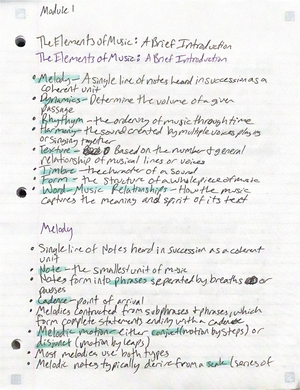 Module 1
The Elements of Music: A Brief Introduction
The Elements of Music: A Brief Introduction
• Melody - A single line of notes heard in succession as a
coherent unit
• Dynamics - Determine the volume of a given
passage
• Rhythm - the ordering of music through time
• Harmony - the sound created by multiple voices playing
or singing together
• Texture - Based on the number & general
relationship of musical lines or voices
• Timbre - the character of a sound
• Form - the structure of a whole piece of music
• Word-Music Relationships - How the music
captures the meaning and spirit of its text
Melody
• Single line of Notes heard in succession as a coherent
unit
• Note - the smallest unit of music
• Notes form into phrases separated by breaths or
pauses
• Cadence - point of arrival
• Melodies contructed from subphrases & phrases, which
form complete statements ending with a cadence
• Melodic motion - either conjunct (motion by steps) or
disjunct (motion by leaps)
• Most melodies use both types
• Melodic notes typically derive from a scale (series of